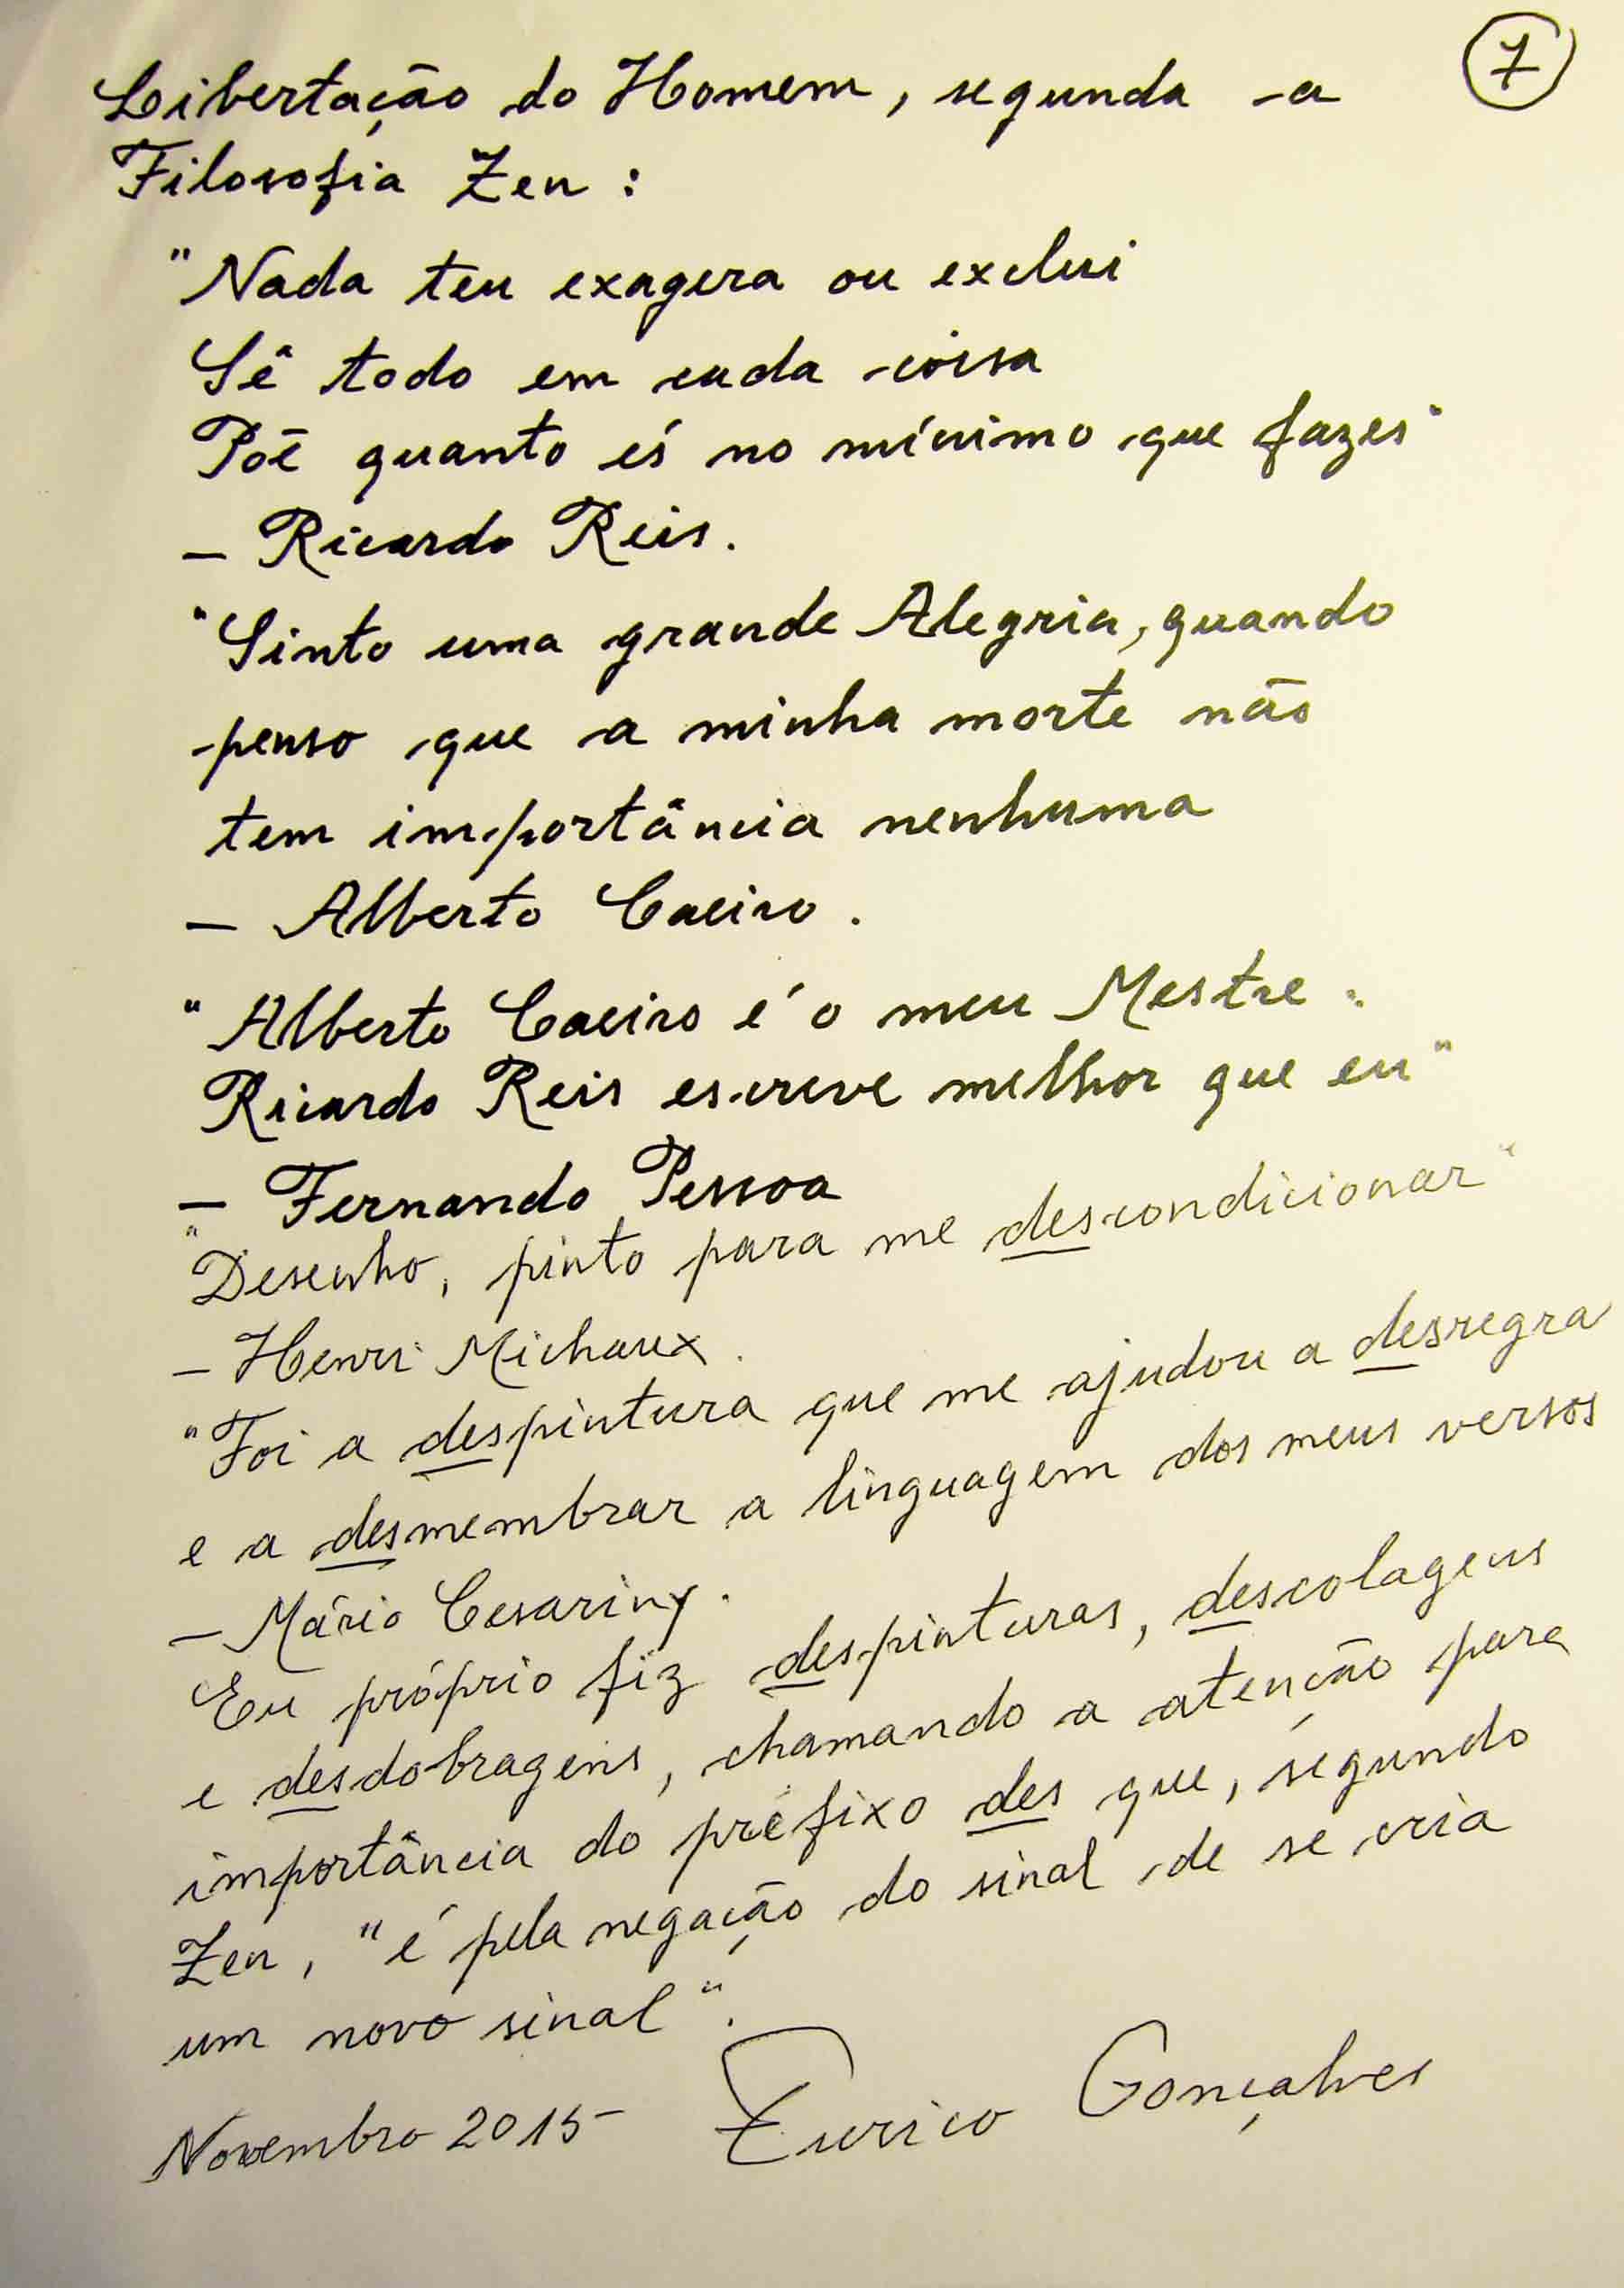 7
Libertação do Homem, segunda a
Filosofia Zen :
"Nada teu exagera ou exclui
Sê todo em cada coisa
Põe quanto és no mínimo que fazes"
— Ricardo Reis.
"Sinto uma grande Alegria, quando
penso que a minha morte não
tem importância nenhuma
— Alberto Caeiro.
"Alberto Caeiro é o meu Mestre.
Ricardo Reis escreve melhor que eu"
— Fernando Pessoa
"Desenho, pinto para me descondicionar"
— Henri Michaux.
"Foi a despintura que me ajudou a desregra
e a desmembrar a linguagem dos meus versos
— Mário Cesariny.
Eu próprio fiz despinturas, descolagens
e desdobragens, chamando a atenção para
importância do prefixo des que, segundo
Zen, "é pela negação do sinal de se cria
um novo sinal".
Novembro 2015 Eurico Gonçalves